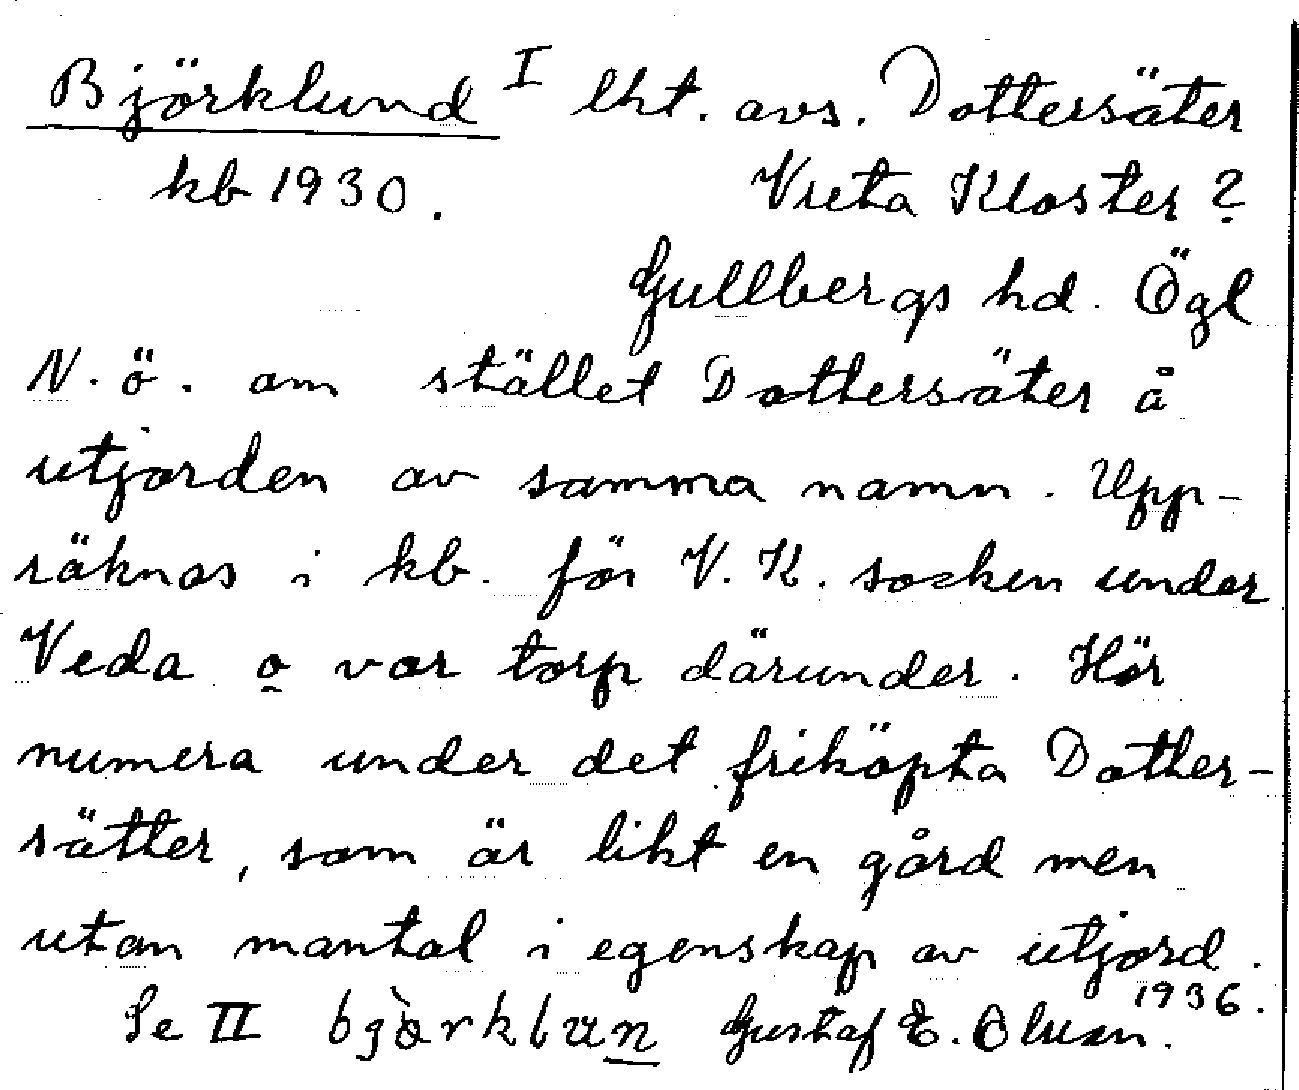 Björklund I lht. avs. Dottersäter
kb 1930. Vreta Kloster ?
Gullbergs hd. Ögl
N. ö. om stället Dottersäter å
utjorden av samma namn. Upp-
räknas i kb. för V. K. socken under
Veda o var torp därunder. Hör
numera under det friköpta Dotter-
sätter, som är likt en gård men
utan mantal i egenskap av utjord.
Se II Gustaf E. Olsson. 1936.